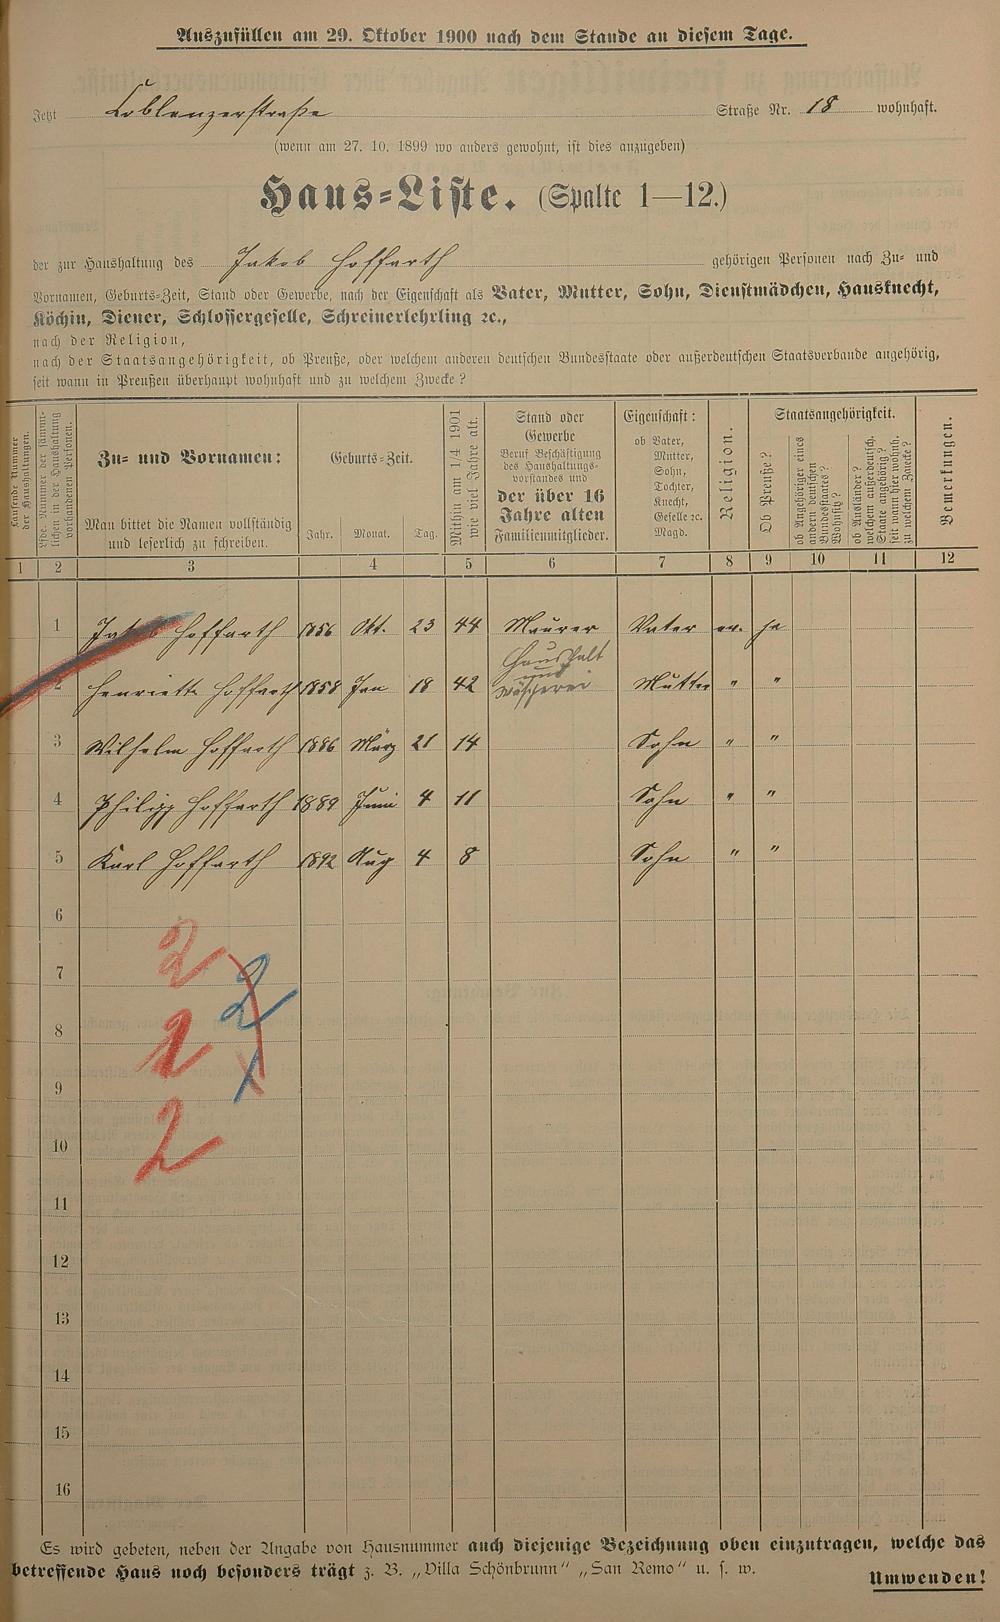 Auszufüllen am 29. Oktober 1900 nach dem Stande an diesem Tage.
Jetzt Coblenzerstraße Straße Nr. 18 wohnhaft.
(wenn am 27. 10. 1899 wo anders gewohnt, ist dies anzugeben)
Haus-Liste. (Spalte 1—12.)
der zur Haushaltung des Jakob Hoffarth gehörigen Personen nach Zu- und
Vornamen, Geburts-Zeit, Stand oder Gewerbe, nach der Eigenschaft als Vater, Mutter, Sohn, Dienstmädchen, Hausknecht,
Köchin, Diener, Schlossergeselle, Schreinerlehrling ꝛc.,
nach der Religion,
nach der Staatsangehörigkeit, ob Preuße, oder welchem anderen deutschen Bundesstaate oder außerdeutschen Staatsverbande angehörig,
seit wann in Preußen überhaupt wohnhaft und zu welchem Zwecke?
Laufende Nummer
der Haushaltungen.
Lfde. Nummer der sämmt-
lichen in der Haushaltung
vorhandenen Personen.
Zu- und Vornamen:
Man bittet die Namen vollständig
und leserlich zu schreiben.
Geburts-Zeit.
Jahr. Monat. Tag.
Mithin am 1/4 1901
wie viel Jahre alt.
Stand oder
Gewerbe
Beruf Beschäftigung
des Haushaltungs-
vorstandes und
der über 16
Jahre alten
Familienmitglieder.
Eigenschaft:
ob Vater,
Mutter,
Sohn,
Tochter,
Knecht,
Geselle ꝛc.
Magd.
Religion.
Staatsangehörigkeit.
Ob Preuße?
ob Angehöriger eines
andern deutschen
Bundesstaates?
Wohnsitz?
ob Ausländer?
welchem außerdeutsch.
Staate angehörig?
seit wann hier wohnh.
zu welchem Zwecke?
Bemerkungen.
1 2 3 4 5 6 7 8 9 10 11 12
1 Jakob Hoffarth 1856 Okt. 23 44 Maurer Vater ev. ja
Haushalt
und
2 Henriette Hoffarth 1858 Jan 18 42 Wäscherei Mutter " "
3 Wilhelm Hoffarth 1886 März 21 14 Sohn " "
4 Philipp Hoffarth 1889 Juni 4 11 Sohn " "
5 Karl Hoffarth 1892 Aug 4 8 Sohn " "
6
2
7
2
8
2
9
10
2
11
12
13
14
15
16
Es wird gebeten, neben der Angabe von Hausnummer auch diejenige Bezeichnung oben einzutragen, welche das
betreffende Haus noch besonders trägt z. B. „Villa Schönbrunn" „San Remo" u. s. w.
Umwenden!